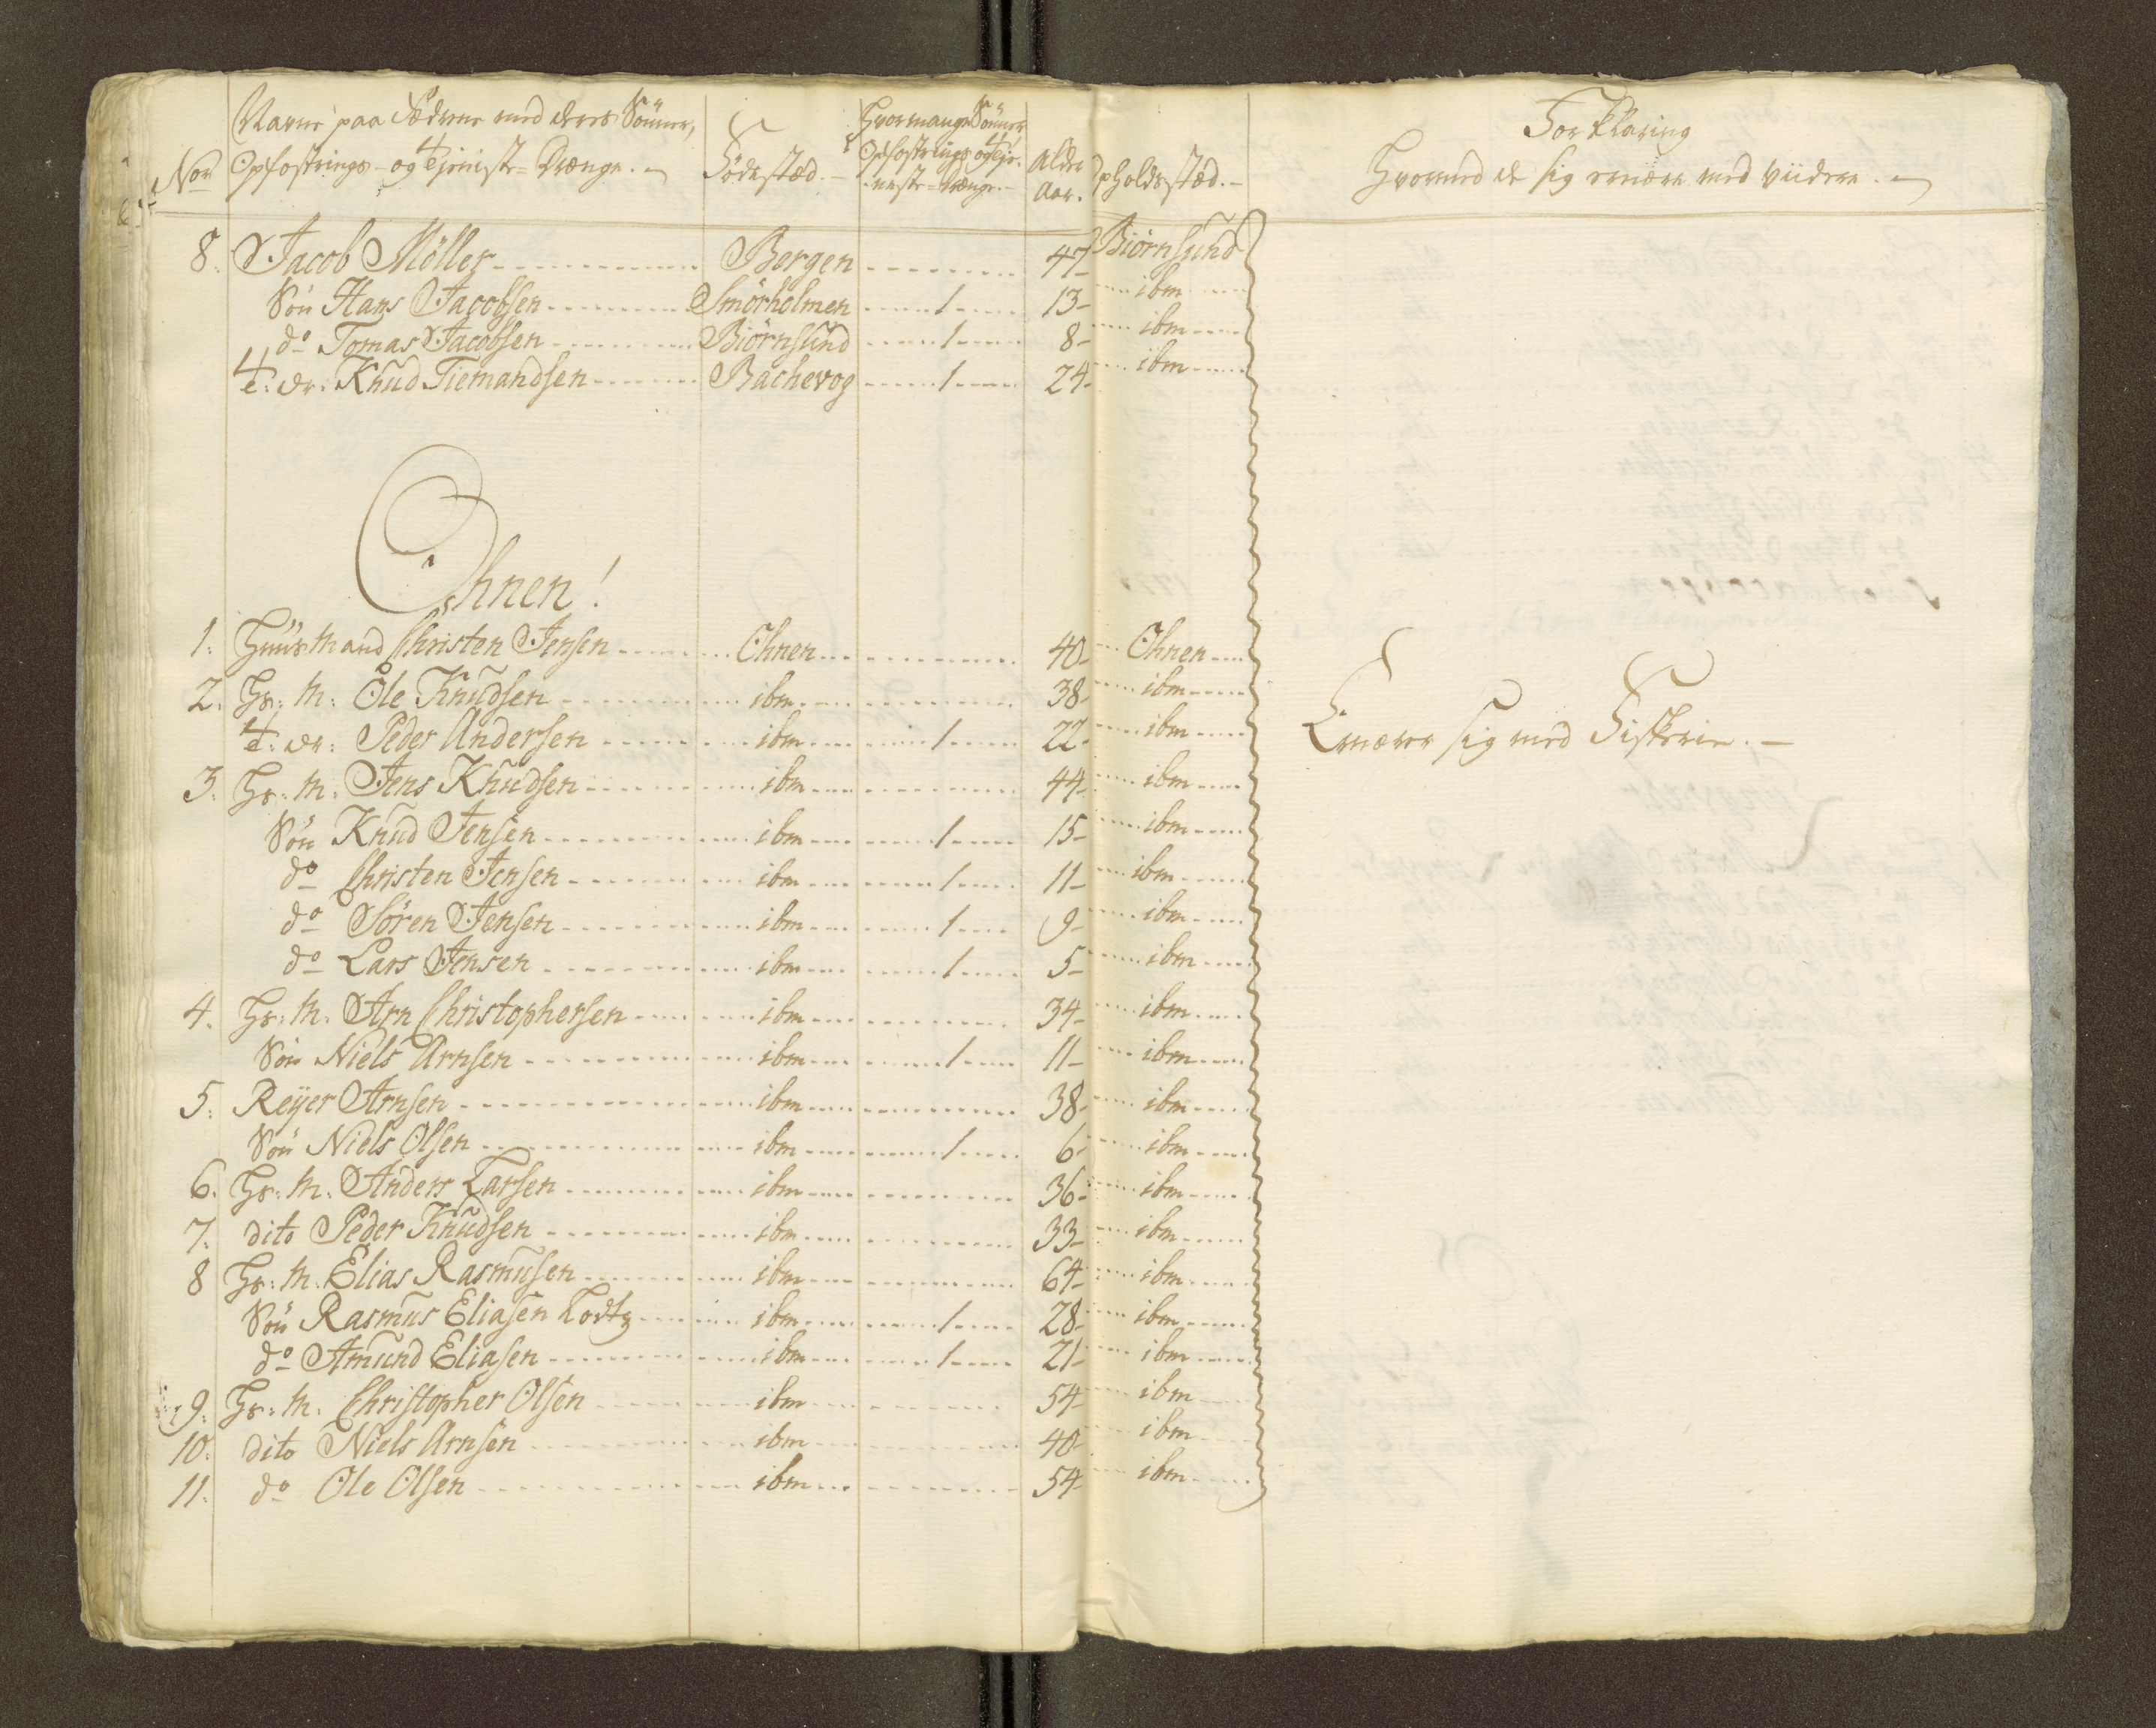 Nor Navne paa Fædrene med deres Sönner, Opfostrings- og Tjeniste-Drænge. Födestæd. Hvormange Sönner Opfostrings og Tjeneste-Drænge. Alder Aar. Opholdsstæd. Forklaring Hvormed de sig ernære med viidere.
8. Jacob Möller Bergen 47 Biörnsund
Sön Hans Jacobsen Smörholmen 1 13 ibm
do Tomas Jacobsen Biörnsund 1 8 ibm
t: dr: Knud Tiemandsen Bachevog 1 24 ibm
Ohnen!
1. Huusmand Christen Jensen Ohnen 40 Ohnen
2. Hs: M: Ole Knudsen ibm 38 ibm
t: dr: Peder Andersen ibm 1 22 ibm
Ernærer sig med Fiskerie.
3. Hs: M: Jens Knudsen ibm 44 ibm
Sön Knud Jensen ibm 1 15 ibm
do Christen Jensen ibm 1 11 ibm
do Sören Jensen ibm 1 9 ibm
do Lars Jensen ibm 1 5 ibm
4. Hs: M: Arn Christophersen ibm 34 ibm
Sön Niels Arnsen ibm 1 11 ibm
5. Reÿer Arnsen ibm 38 ibm
Sön Niels Olsen ibm 1 6 ibm
6. Hs: M: Anders Larsen ibm 36 ibm
7. dito Peder Knudsen ibm 33 ibm
8 Hs: M: Elias Rasmusen ibm 64 ibm
Sön Rasmus Eliasen ibm 1 28 ibm
do Amund Eliasen ibm 1 21 ibm
9. Hs: M: Christopher Olsen ibm 54 ibm
10. dito Niels Arnsen ibm 40 ibm
11. do Ole Olsen ibm 54 ibm